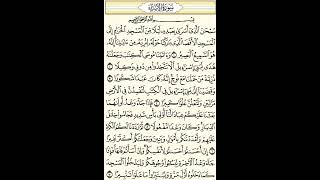 سُورَةُ الْإِسْرَاءِ
بِسْمِ اللَّهِ الرَّحْمَٰنِ الرَّحِيمِ
سُبْحَانَ الَّذِي أَسْرَىٰ بِعَبْدِهِ لَيْلًا مِنَ الْمَسْجِدِ الْحَرَامِ إِلَى
الْمَسْجِدِ الْأَقْصَا الَّذِي بَارَكْنَا حَوْلَهُ لِنُرِيَهُ مِنْ آيَاتِنَا إِنَّهُ
هُوَ السَّمِيعُ الْبَصِيرُ ١ وَآتَيْنَا مُوسَى الْكِتَابَ وَجَعَلْنَاهُ
هُدًى لِبَنِي إِسْرَائِيلَ أَلَّا تَتَّخِذُوا مِنْ دُونِي وَكِيلًا ٢
ذُرِّيَّةَ مَنْ حَمَلْنَا مَعَ نُوحٍ إِنَّهُ كَانَ عَبْدًا شَكُورًا ٣
وَقَضَيْنَا إِلَىٰ بَنِي إِسْرَائِيلَ فِي الْكِتَابِ لَتُفْسِدُنَّ فِي الْأَرْضِ
مَرَّتَيْنِ وَلَتَعْلُنَّ عُلُوًّا كَبِيرًا ٤ فَإِذَا جَاءَ وَعْدُ أُولَاهُمَا
بَعَثْنَا عَلَيْكُمْ عِبَادًا لَنَا أُولِي بَأْسٍ شَدِيدٍ فَجَاسُوا خِلَالَ
الدِّيَارِ وَكَانَ وَعْدًا مَفْعُولًا ٥ ثُمَّ رَدَدْنَا لَكُمُ الْكَرَّةَ
عَلَيْهِمْ وَأَمْدَدْنَاكُمْ بِأَمْوَالٍ وَبَنِينَ وَجَعَلْنَاكُمْ أَكْثَرَ نَفِيرًا ٦
إِنْ أَحْسَنْتُمْ أَحْسَنْتُمْ لِأَنْفُسِكُمْ وَإِنْ أَسَأْتُمْ فَلَهَا فَإِذَا
جَاءَ وَعْدُ الْآخِرَةِ لِيَسُوءُوا وُجُوهَكُمْ وَلِيَدْخُلُوا الْمَسْجِدَ
كَمَا دَخَلُوهُ أَوَّلَ مَرَّةٍ وَلِيُتَبِّرُوا مَا عَلَوْا تَتْبِيرًا ٧